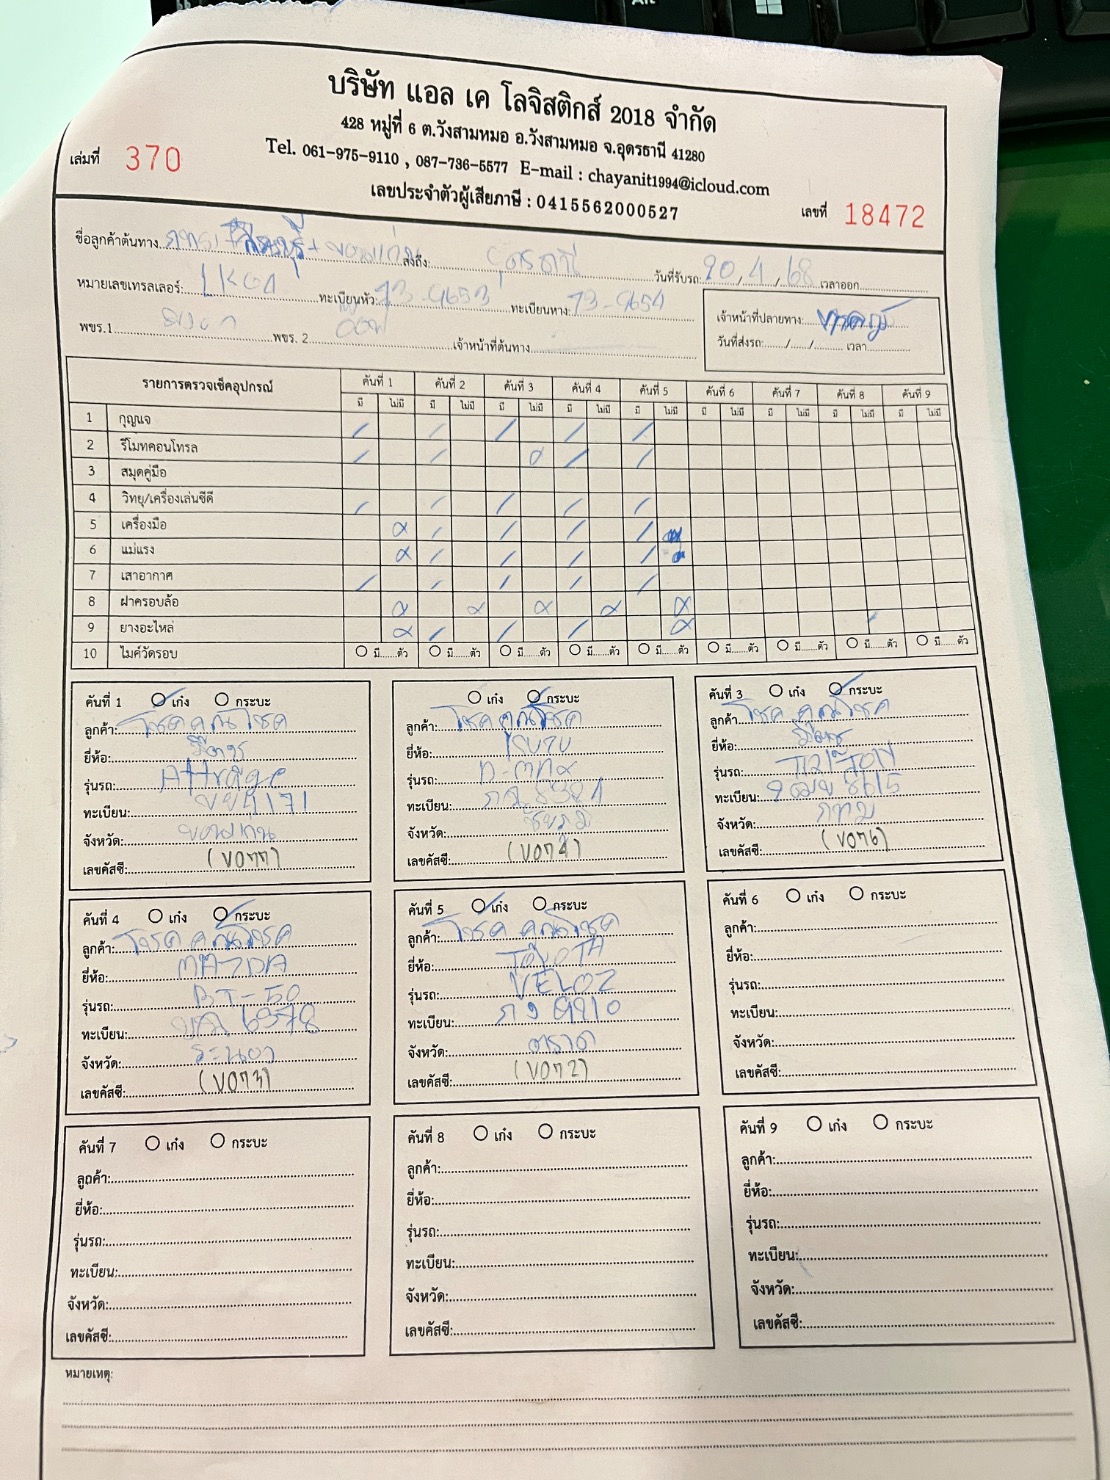 บริษัท แอล เค โลจิสติกส์ 2018 จำกัด
428 หมู่ที่ 6 ต.วังสามหมอ อ.วังสามหมอ จ.อุดรธานี 41280
Tel. 061-975-9110 , 087-736-5577 E-mail : chayanit1994@icloud.com
เลขประจำตัวผู้เสียภาษี : 0415562000527
เล่มที่ 370
เลขที่ 18472
ชื่อลูกค้าต้นทาง ส่งถึง: วันที่รับรถ: 20, 4, 68 เวลาออก
หมายเลขเทรลเลอร์: ทะเบียนหัว: 73-9653 ทะเบียนหาง: 73-9654
พขร.1 พขร. 2 เจ้าหน้าที่ต้นทาง
เจ้าหน้าที่ปลายทาง:
วันที่ส่งรถ: / / เวลา
รายการตรวจเช็คอุปกรณ์ คันที่ 1 คันที่ 2 คันที่ 3 คันที่ 4 คันที่ 5 คันที่ 6 คันที่ 7 คันที่ 8 คันที่ 9
มี ไม่มี มี ไม่มี มี ไม่มี มี ไม่มี มี ไม่มี มี ไม่มี มี ไม่มี มี ไม่มี มี ไม่มี
1 กุญแจ
2 รีโมทคอนโทรล
3 สมุดคู่มือ
4 วิทยุ/เครื่องเล่นซีดี
5 เครื่องมือ
6 แม่แรง
7 เสาอากาศ
8 ฝาครอบล้อ
9 ยางอะไหล่
10 ไมค์วัดรอบ มี ตัว มี ตัว มี ตัว มี ตัว มี ตัว มี ตัว มี ตัว มี ตัว มี ตัว
คันที่ 1 เก๋ง กระบะ
ลูกค้า: โชค คูณโชค
ยี่ห้อ:
รุ่นรถ: Attrage
ทะเบียน:
จังหวัด: ขอนแก่น
เลขคัสซี: (V077)
เก๋ง กระบะ
ลูกค้า: โชค คูณโชค
ยี่ห้อ: ISUZU
รุ่นรถ: D-max
ทะเบียน:
จังหวัด: ชัยภูมิ
เลขคัสซี: (V074)
คันที่ 3 เก๋ง กระบะ
ลูกค้า: โชค คูณโชค
ยี่ห้อ:
รุ่นรถ: TRITON
ทะเบียน:
จังหวัด: กทม
เลขคัสซี: (V076)
คันที่ 4 เก๋ง กระบะ
ลูกค้า: โชค คูณโชค
ยี่ห้อ: MAZDA
รุ่นรถ: BT-50
ทะเบียน:
จังหวัด: ระนอง
เลขคัสซี: (V073)
คันที่ 5 เก๋ง กระบะ
ลูกค้า: โชค คูณโชค
ยี่ห้อ: TOYOTA
รุ่นรถ: VELOZ
ทะเบียน:
จังหวัด: ตราด
เลขคัสซี: (V072)
คันที่ 6 เก๋ง กระบะ
ลูกค้า:
ยี่ห้อ:
รุ่นรถ:
ทะเบียน:
จังหวัด:
เลขคัสซี:
คันที่ 7 เก๋ง กระบะ
ลูกค้า:
ยี่ห้อ:
รุ่นรถ:
ทะเบียน:
จังหวัด:
เลขคัสซี:
คันที่ 8 เก๋ง กระบะ
ลูกค้า:
ยี่ห้อ:
รุ่นรถ:
ทะเบียน:
จังหวัด:
เลขคัสซี:
คันที่ 9 เก๋ง กระบะ
ลูกค้า:
ยี่ห้อ:
รุ่นรถ:
ทะเบียน:
จังหวัด:
เลขคัสซี:
หมายเหตุ: